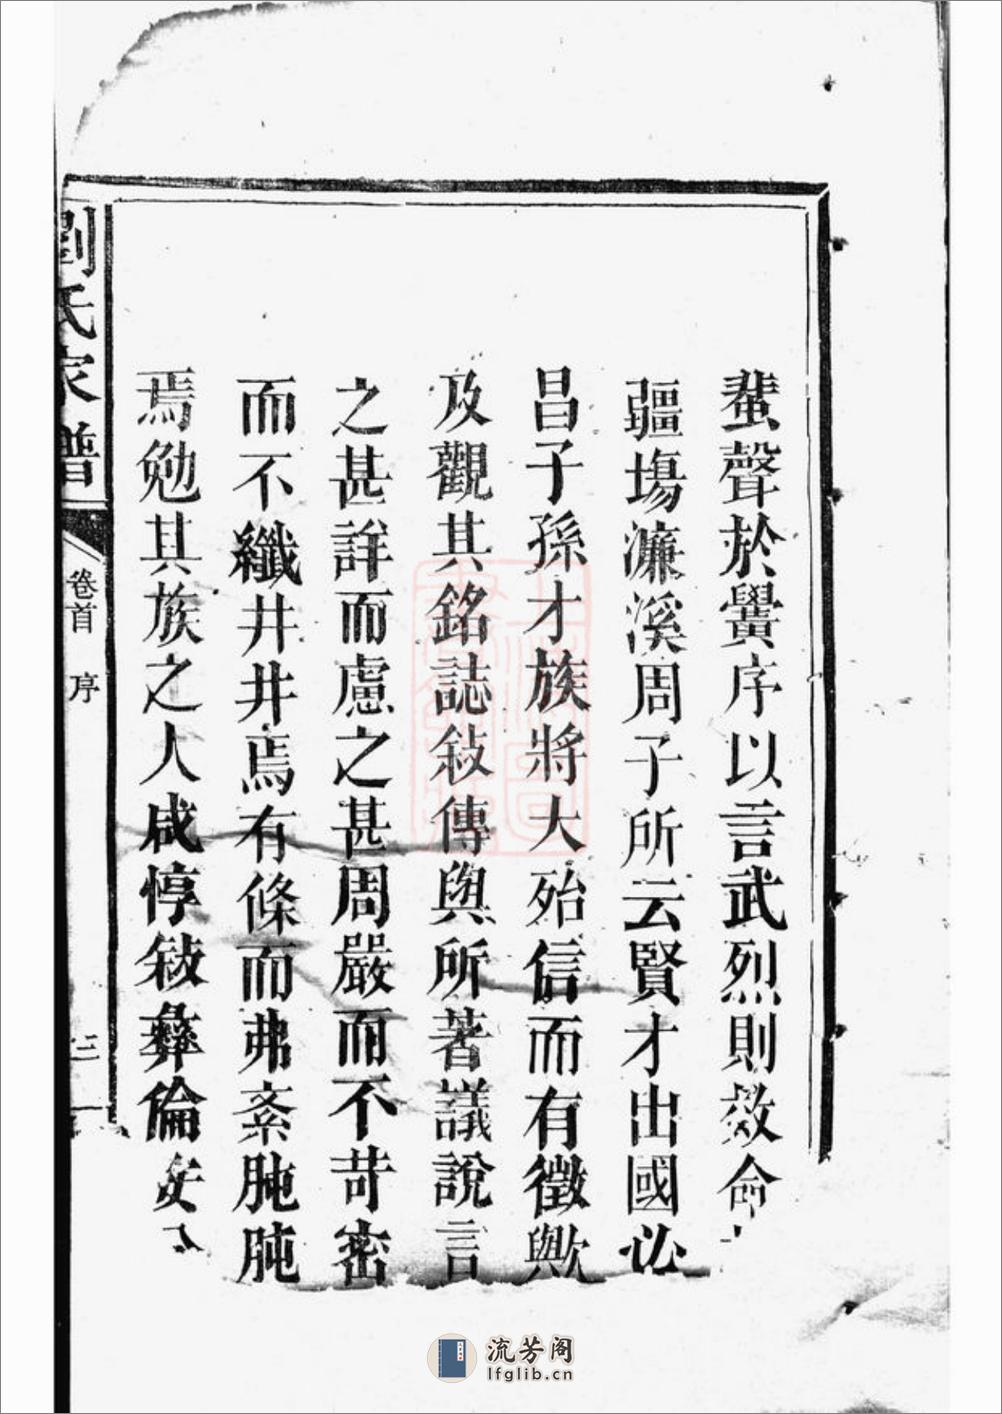 蜚聲於黌序以言武烈則效命
疆場濂溪周子所云賢才出國必
昌子孫才族將大殆信而有徵歟
及觀其銘誌敍傳與所著議說言
之甚詳而慮之甚周嚴而不苛密
而不纖井井焉有條而弗紊肫肫
焉勉其族之人咸惇敍彝倫
劉氏家譜
卷首 序
三
流芳阁
lfglib.cn